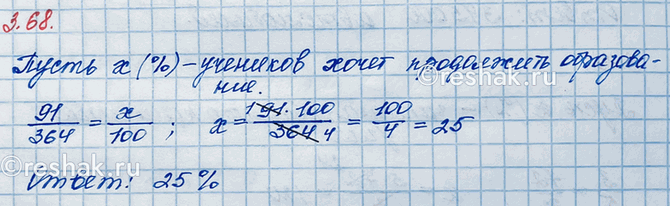 3.68.
Пусть x (%) – учеников хочет продолжить образова-
ние.
91/364 = x/100 ; x = 1 91 · 100/364 4 = 100/4 = 25
Ответ: 25 %